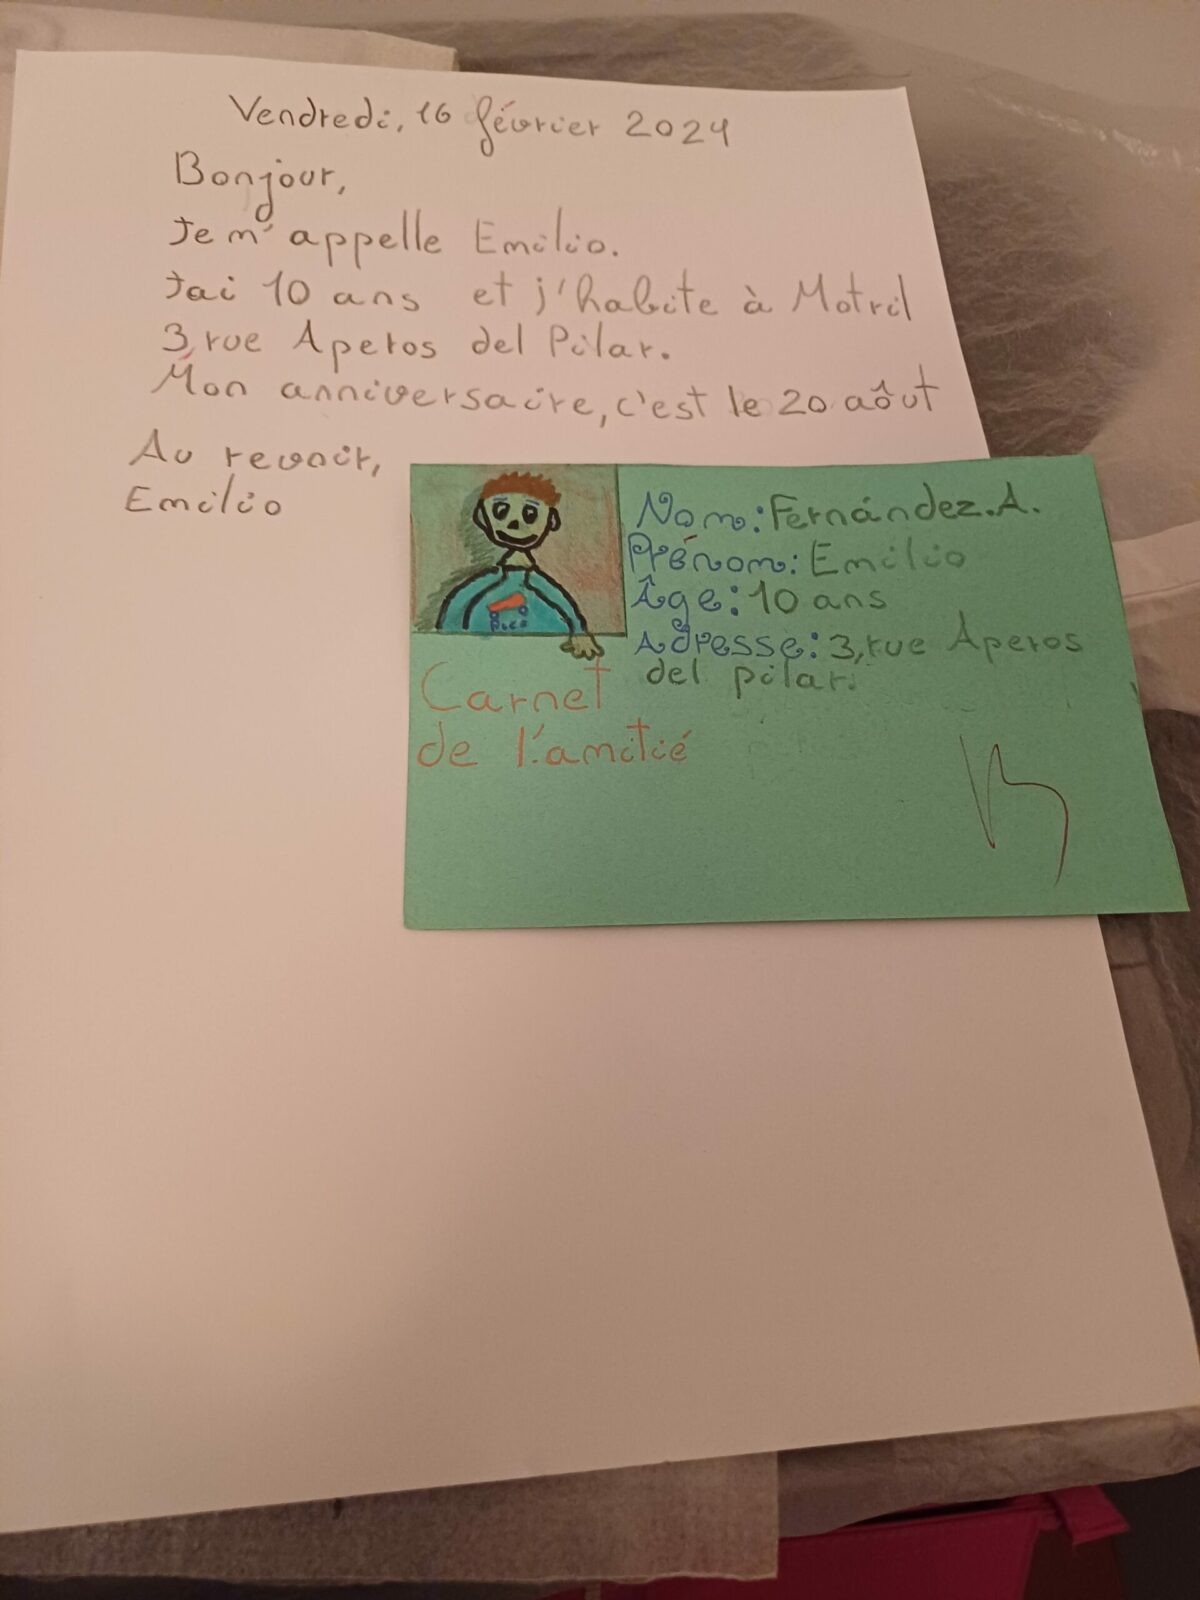 Vendredi, 16 février 2024
Bonjour,
Je m'appelle Emilio.
Jai 10 ans et j'habite à Motril
3, rue Aperos del Pilar.
Mon anniversaire, c'est le 20 aôut
Au revoir,
Emilio
Nom: Fernández.A.
Prénom: Emilio
Âge: 10 ans
Adresse: 3, rue Aperos
del pilar.
Carnet
de l'amitié